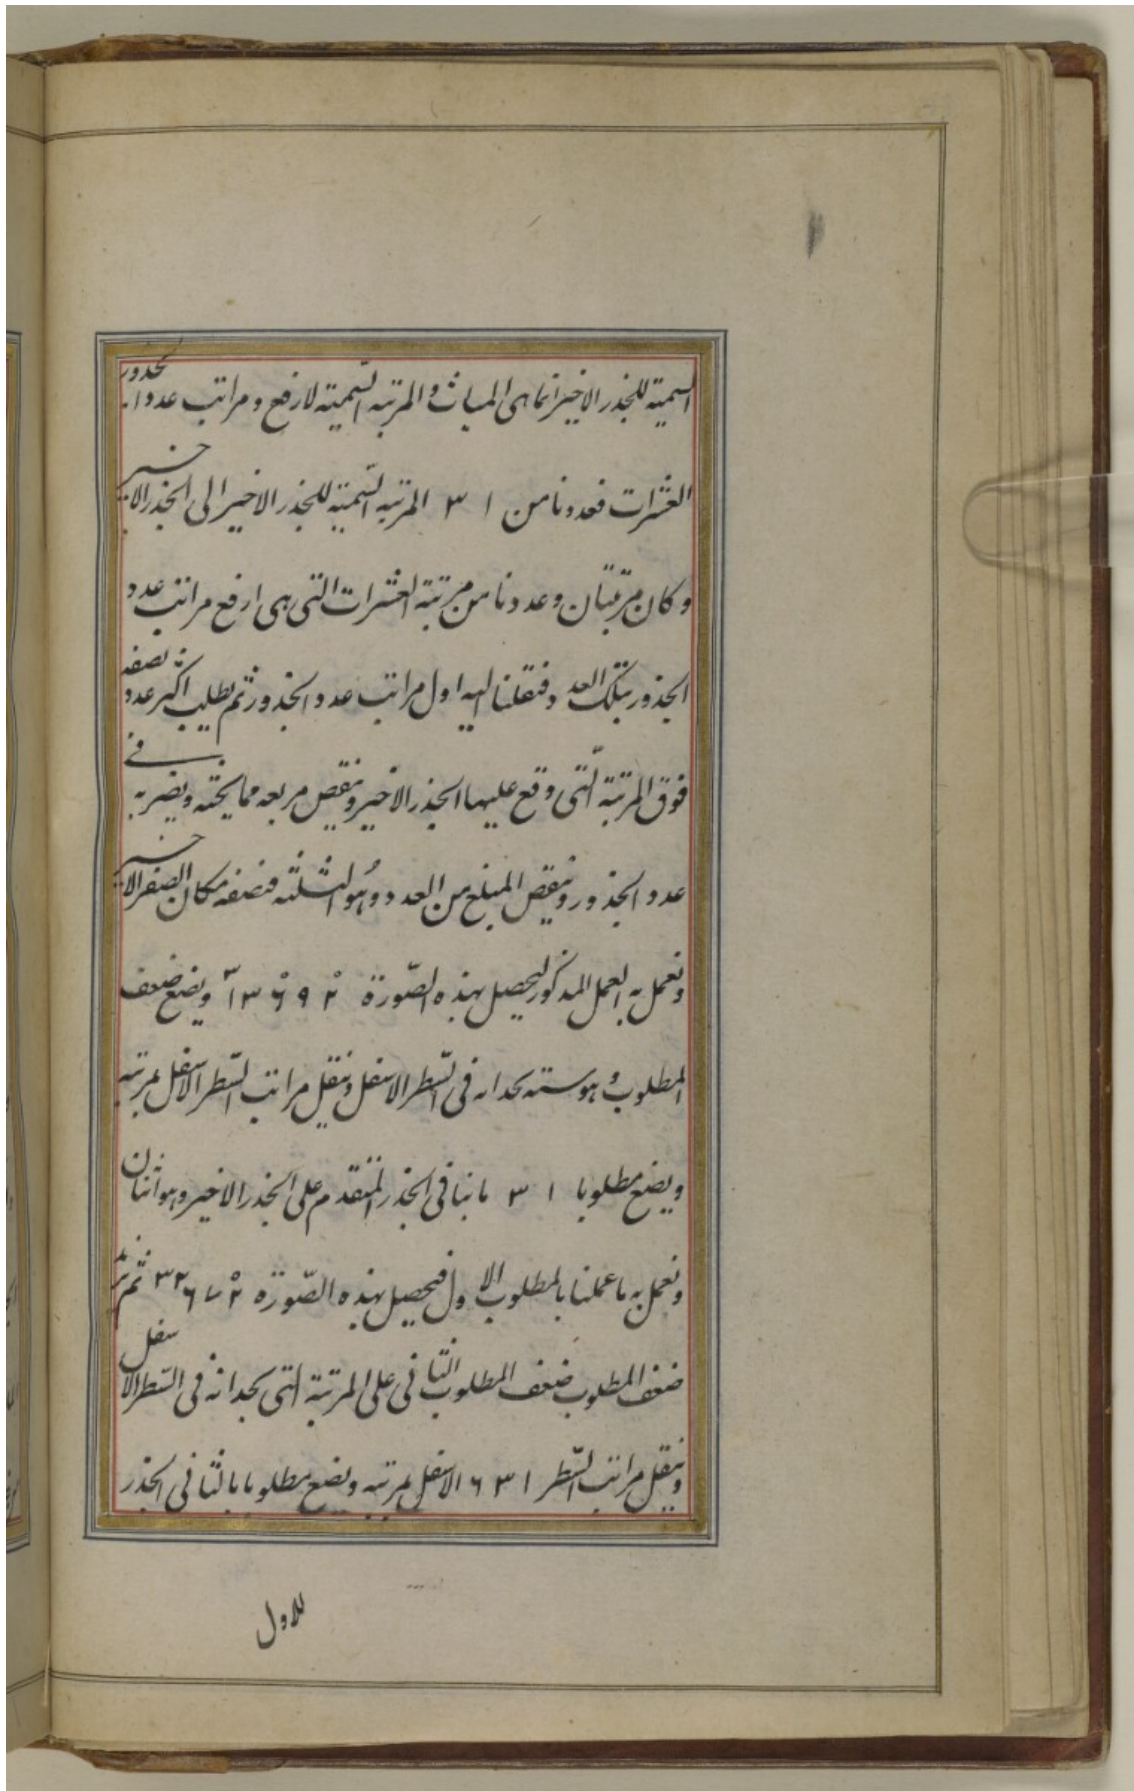 السمية للجذر الاخير انما هى المیات و المرتبه السّمیته لارفع و مراتب عدد الجذور
العشرات فعددنا من ١ ٣ المرتبه السّمیّة للجذر الاخیر الى الجذر الاخیر
و کان مرتبتان و عددنا من مرتبة العشرات التى هى ارفع مراتب عدد
الجذور بتلک العد د فنقلنا الیه اول مراتب عدد الجذور ثم نطلب اکثر عدد نصفه
فوق المرتبة الّتى وقع علیها الجذر الاخیر و ینقص مربعه مما تحته و یضربه فے
عدد الجذور و ینقص المبلغ من العدد و هُو الثلثه فنضعه مکان الصفر الاخیر
و نعمل به العمل المذکور لیحصل بهذه الصّورة ٢ ٩ ٦ ٣ ١ و یضع ضعف
المطلوب و هو سته بحدائه فى السّطر الاسفل و نقل مراتب السّطر الاسفل بمرتبه
و یضع مطلوبا ١ ٣ ثانیا فى الجذر المتقدم على الجذر الاخیر و هو اثنان
و نعمل به ما عملنا بالمطلوب الاول فیحصل بهذه الصّورة ٢ ٧ ٦ ٣٢ ثم نزید
ضعف المطلوب ضعف المطلوب الثانى على المرتبة التى بحدائه فى السّطر الاسفل
و ینقل مراتب السّطر ١ ٣ ٦ الاسفل بمرتبه و یضع مطلوبا ثالثا فى الجذر
للاول